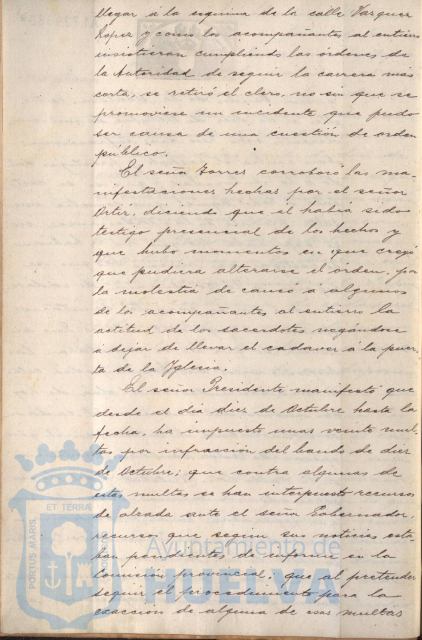 llegar á la esquina de la calle Vazquez
Lopez y como los acompañantes al entierro
insistieran cumpliendo las órdenes de
la Autoridad de seguir la carrera más
corta, se retiró el clero, no sin que se
promoviese un incidente que pudo
ser causa de una cuestión de orden
público.
El señor Torres corroboró las ma-
nifestaciones hechas por el señor
Ortiz, diciendo que él había sido
testigo presencial de los hechos y
que hubo momentos en que creyó
que pudiera alterarse el órden, por
la molestia de causó á algunos
de los acompañantes al entierro la
actitud de los sacerdotes negándose
á dejar de llevar el cadaver á la puer-
ta de la Yglesia.
El señor Presidente manifestó que
desde el día diez de Octubre hasta la
fecha, ha impuesto unas veinte mul-
tas por infracción del bando de diez
de Octubre; que contra algunas de
estas multas se han interpuesto recursos
de alzada ante el señor Gobernador,
recursos que según sus noticias está-
n pendientes de informe en la
Comisión provincial; que al pretender
seguir el procedimiento para la
exacción de alguna de esas multas
PORTUS MARIS ET TERRÆ
Ayuntamiento de
HUELVA